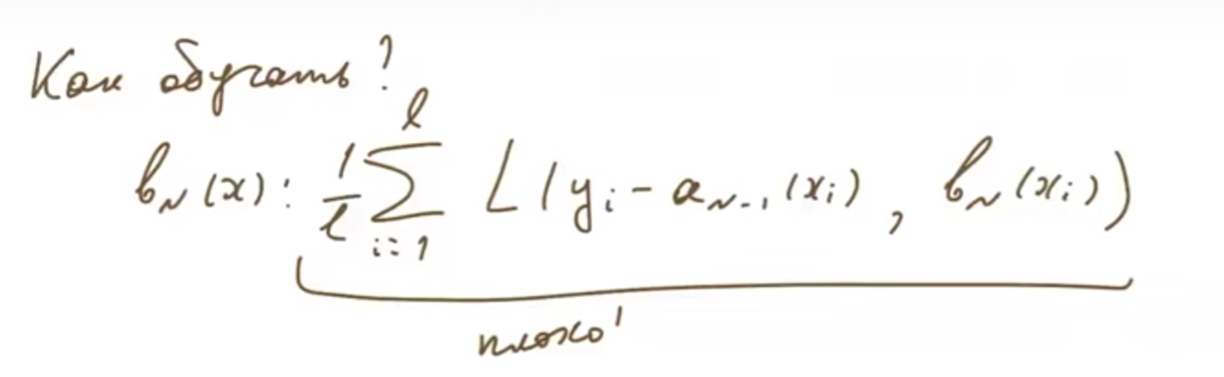 Как обучать?
b_N(x): \frac{1}{ℓ} \sum_{i=1}^{ℓ} L(y_i - a_{N-1}(x_i), b_N(x_i))
плохо!